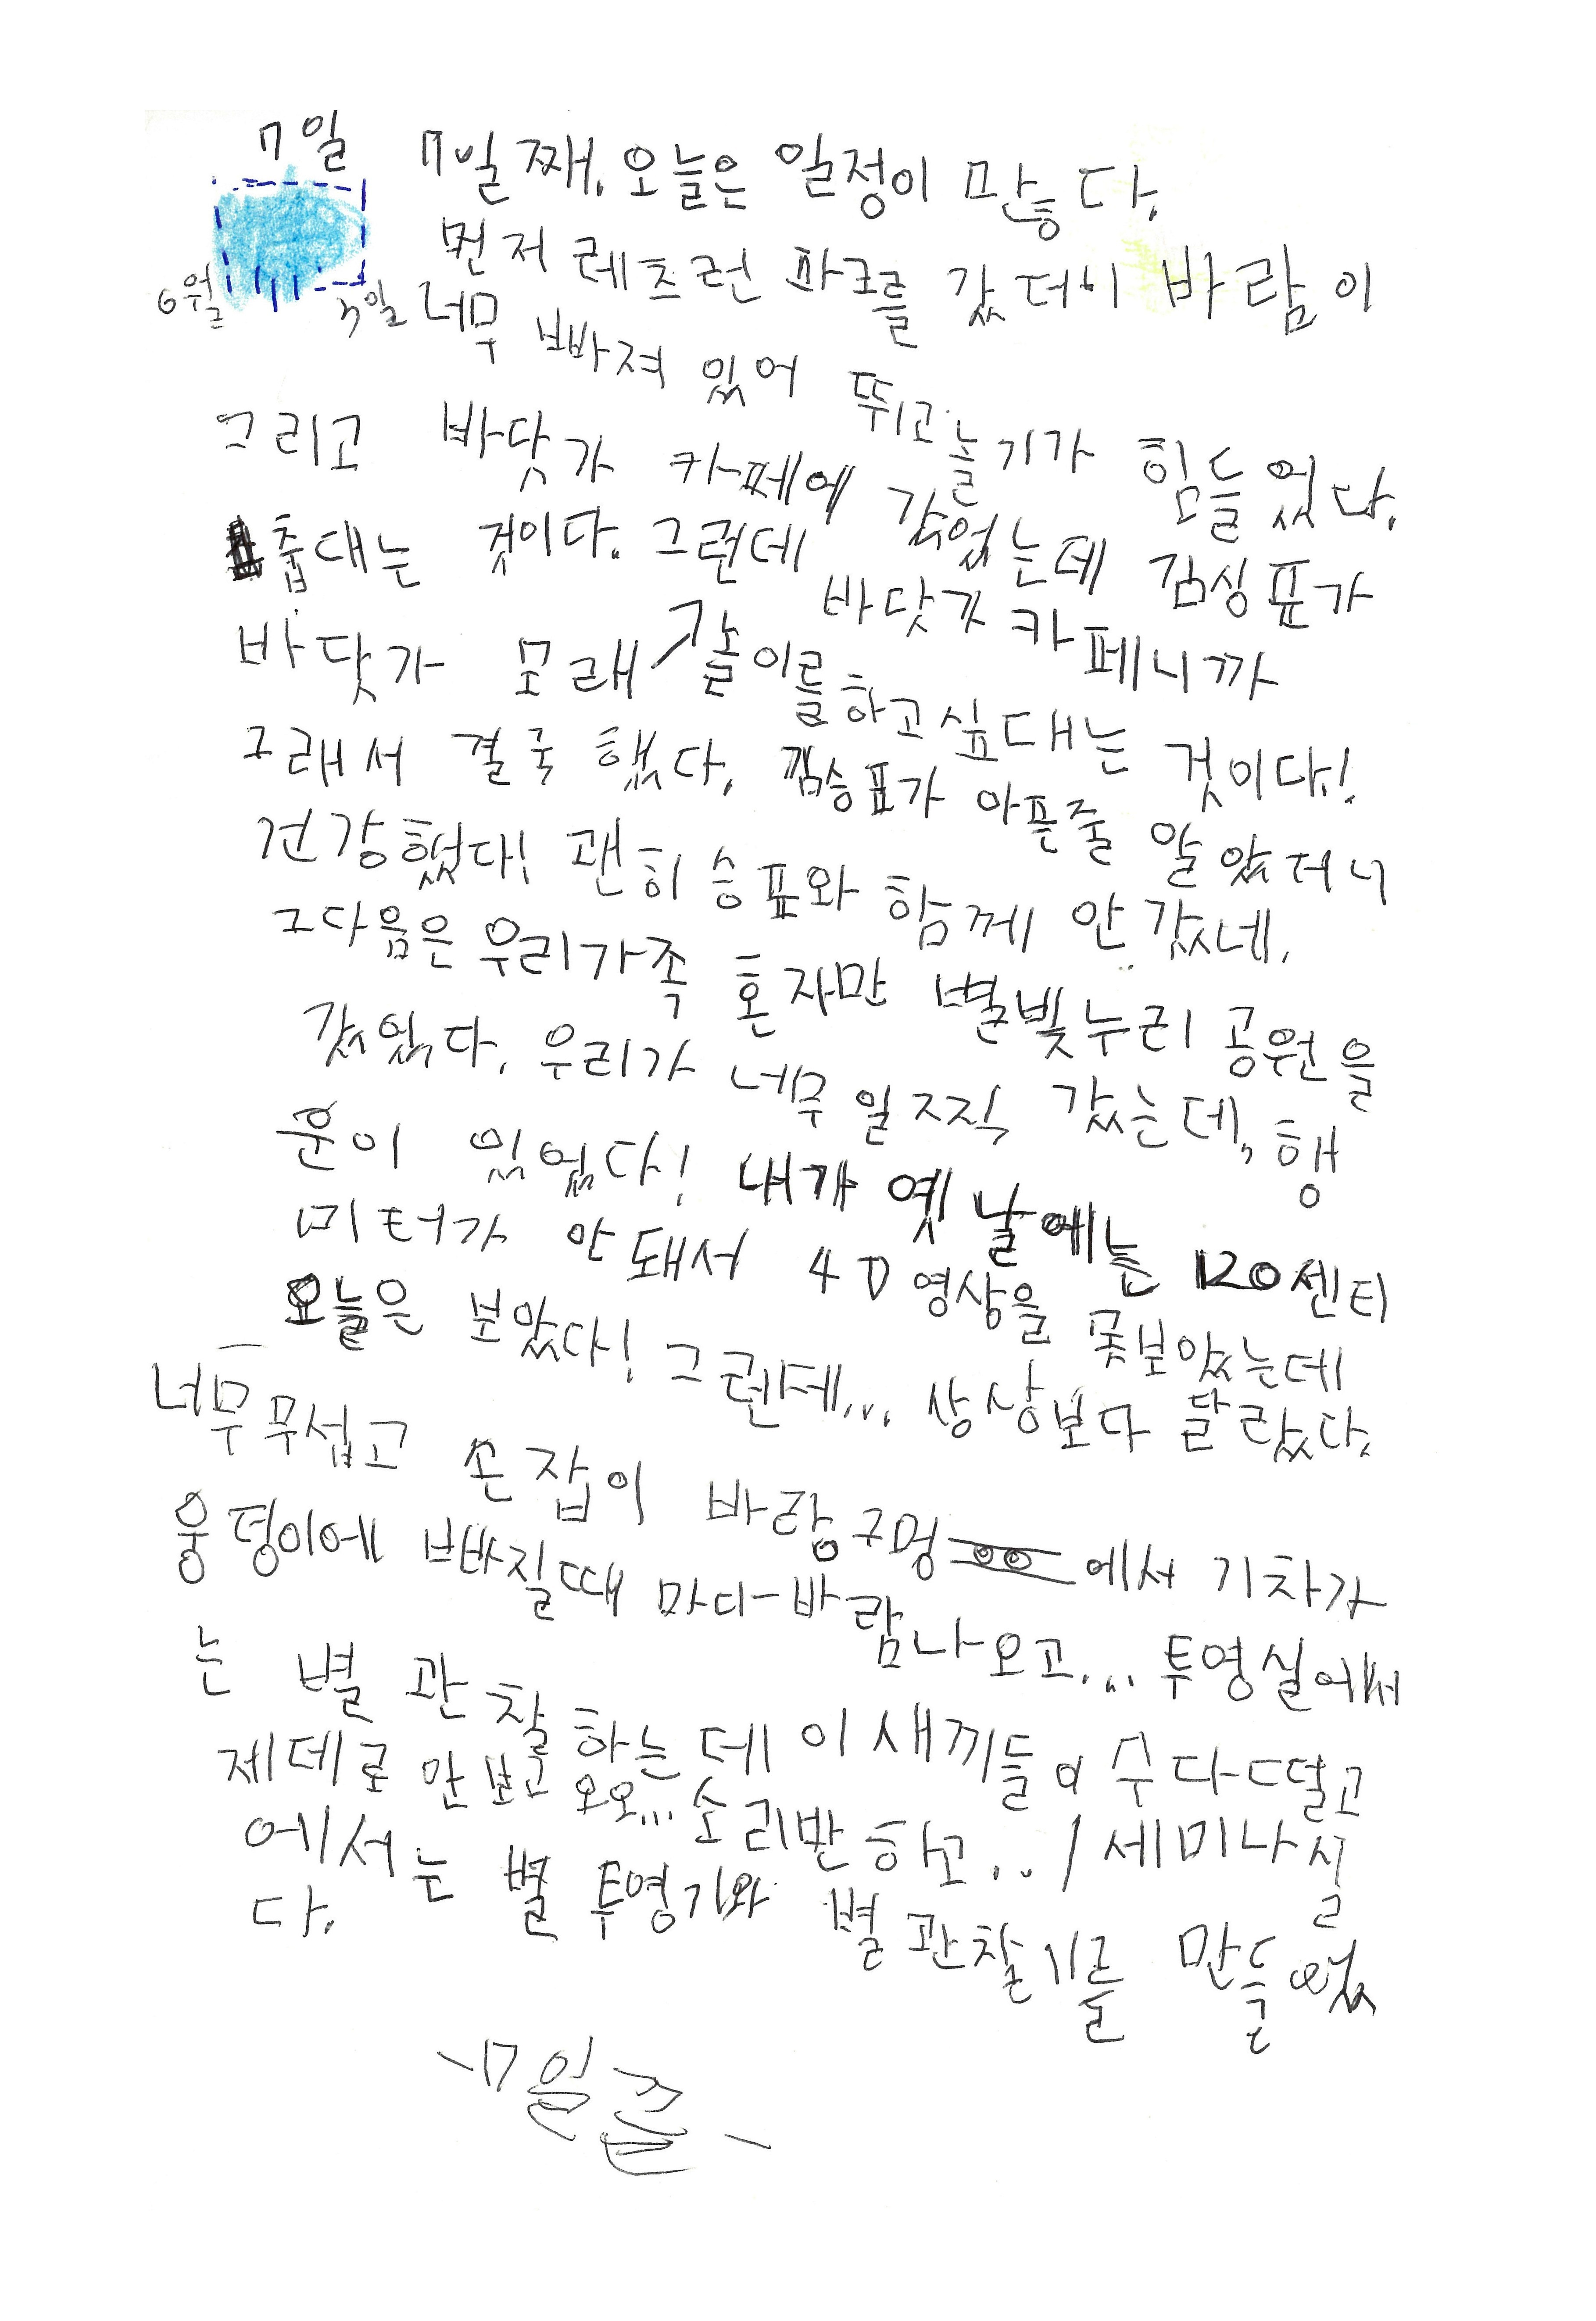 7일
6월
7일
7일째. 오늘은 일정이 만홍다.
먼저 레츠런 파크를 갔더니 바람이
너무 빠져 있어 뛰고 놀기가 힘들었다.
그리고 바닷가 카페에 갔었는데 김싱표가
춥대는 것이다. 그런데 바닷가 카페니까
바닷가 모래 놀이를하고싶대는 것이다!
그래서 결국 했다. 김승표가 아픈줄 알았더니
건강했다! 괜히 승표와 함께 안 갔네.
그다음은 우리가족 혼자만 별빛누리 공원을
갔었다. 우리가 너무 일찍 갔는데, 행
운이 있었다! 내가 옛날에는 120센티
미터가 안돼서 4D 영상을 못보았는데
오늘은 보았다! 그런데... 상상보다 달랐다.
너무 무섭고 손잡이 바람구멍에서 기차가
웅덩이에 빠질때 마다 바람나오고... 투영실에서
는 별 관찰하는데 이 새끼들이 수다떨고
제데로 안보고 오오... 소리만하고../세미나실
에서는 별 투영기와 별 관찰기를 만들었
다.
-7일 끝-